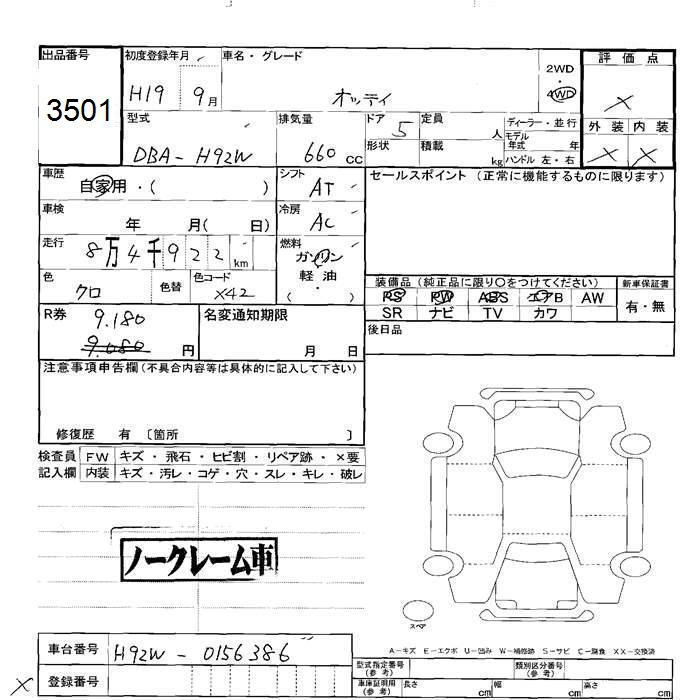 出品番号
3501
初度登録年月
H19 9月
車名・グレード
オッティ
2WD
・
4WD
評価点
×
外装 内装
× ×
型式
DBA-H92W
排気量
660 CC
ドア
5
形状
定員
人
積載
kg
ディーラー・並行
モデル
年式 年
ハンドル 左・右
車歴
自家用・( )
シフト
AT
セールスポイント (正常に機能するものに限ります)
車検
年 月( 日)
冷房
AC
走行
8万4千922km
燃料
ガソリン
・
軽油
( )
色
クロ
色替
色コード
X42
装備品 (純正品に限り○をつけてください)
PS PW ABS エアB AW
SR ナビ TV カワ
新車保証書
有・無
後日品
R券
9.180
9.080 円
名変通知期限
月 日
注意事項申告欄 (不具合内容等は具体的に記入して下さい)
修復歴 有 〔箇所 〕
検査員
記入欄
FW キズ・飛石・ヒビ割・リペア跡・×要
内装 キズ・汚レ・コゲ・穴・スレ・キレ・破レ
ノークレーム車
スペア
A-キズ E-エクボ U-凹み W-補修跡 S-サビ C-腐食 XX-交換済
車台番号
H92W-0156386
× 登録番号
型式指定番号
(参考)
類別区分番号
(参考)
車庫証明用
(参考)
長さ cm
幅 cm
高さ cm